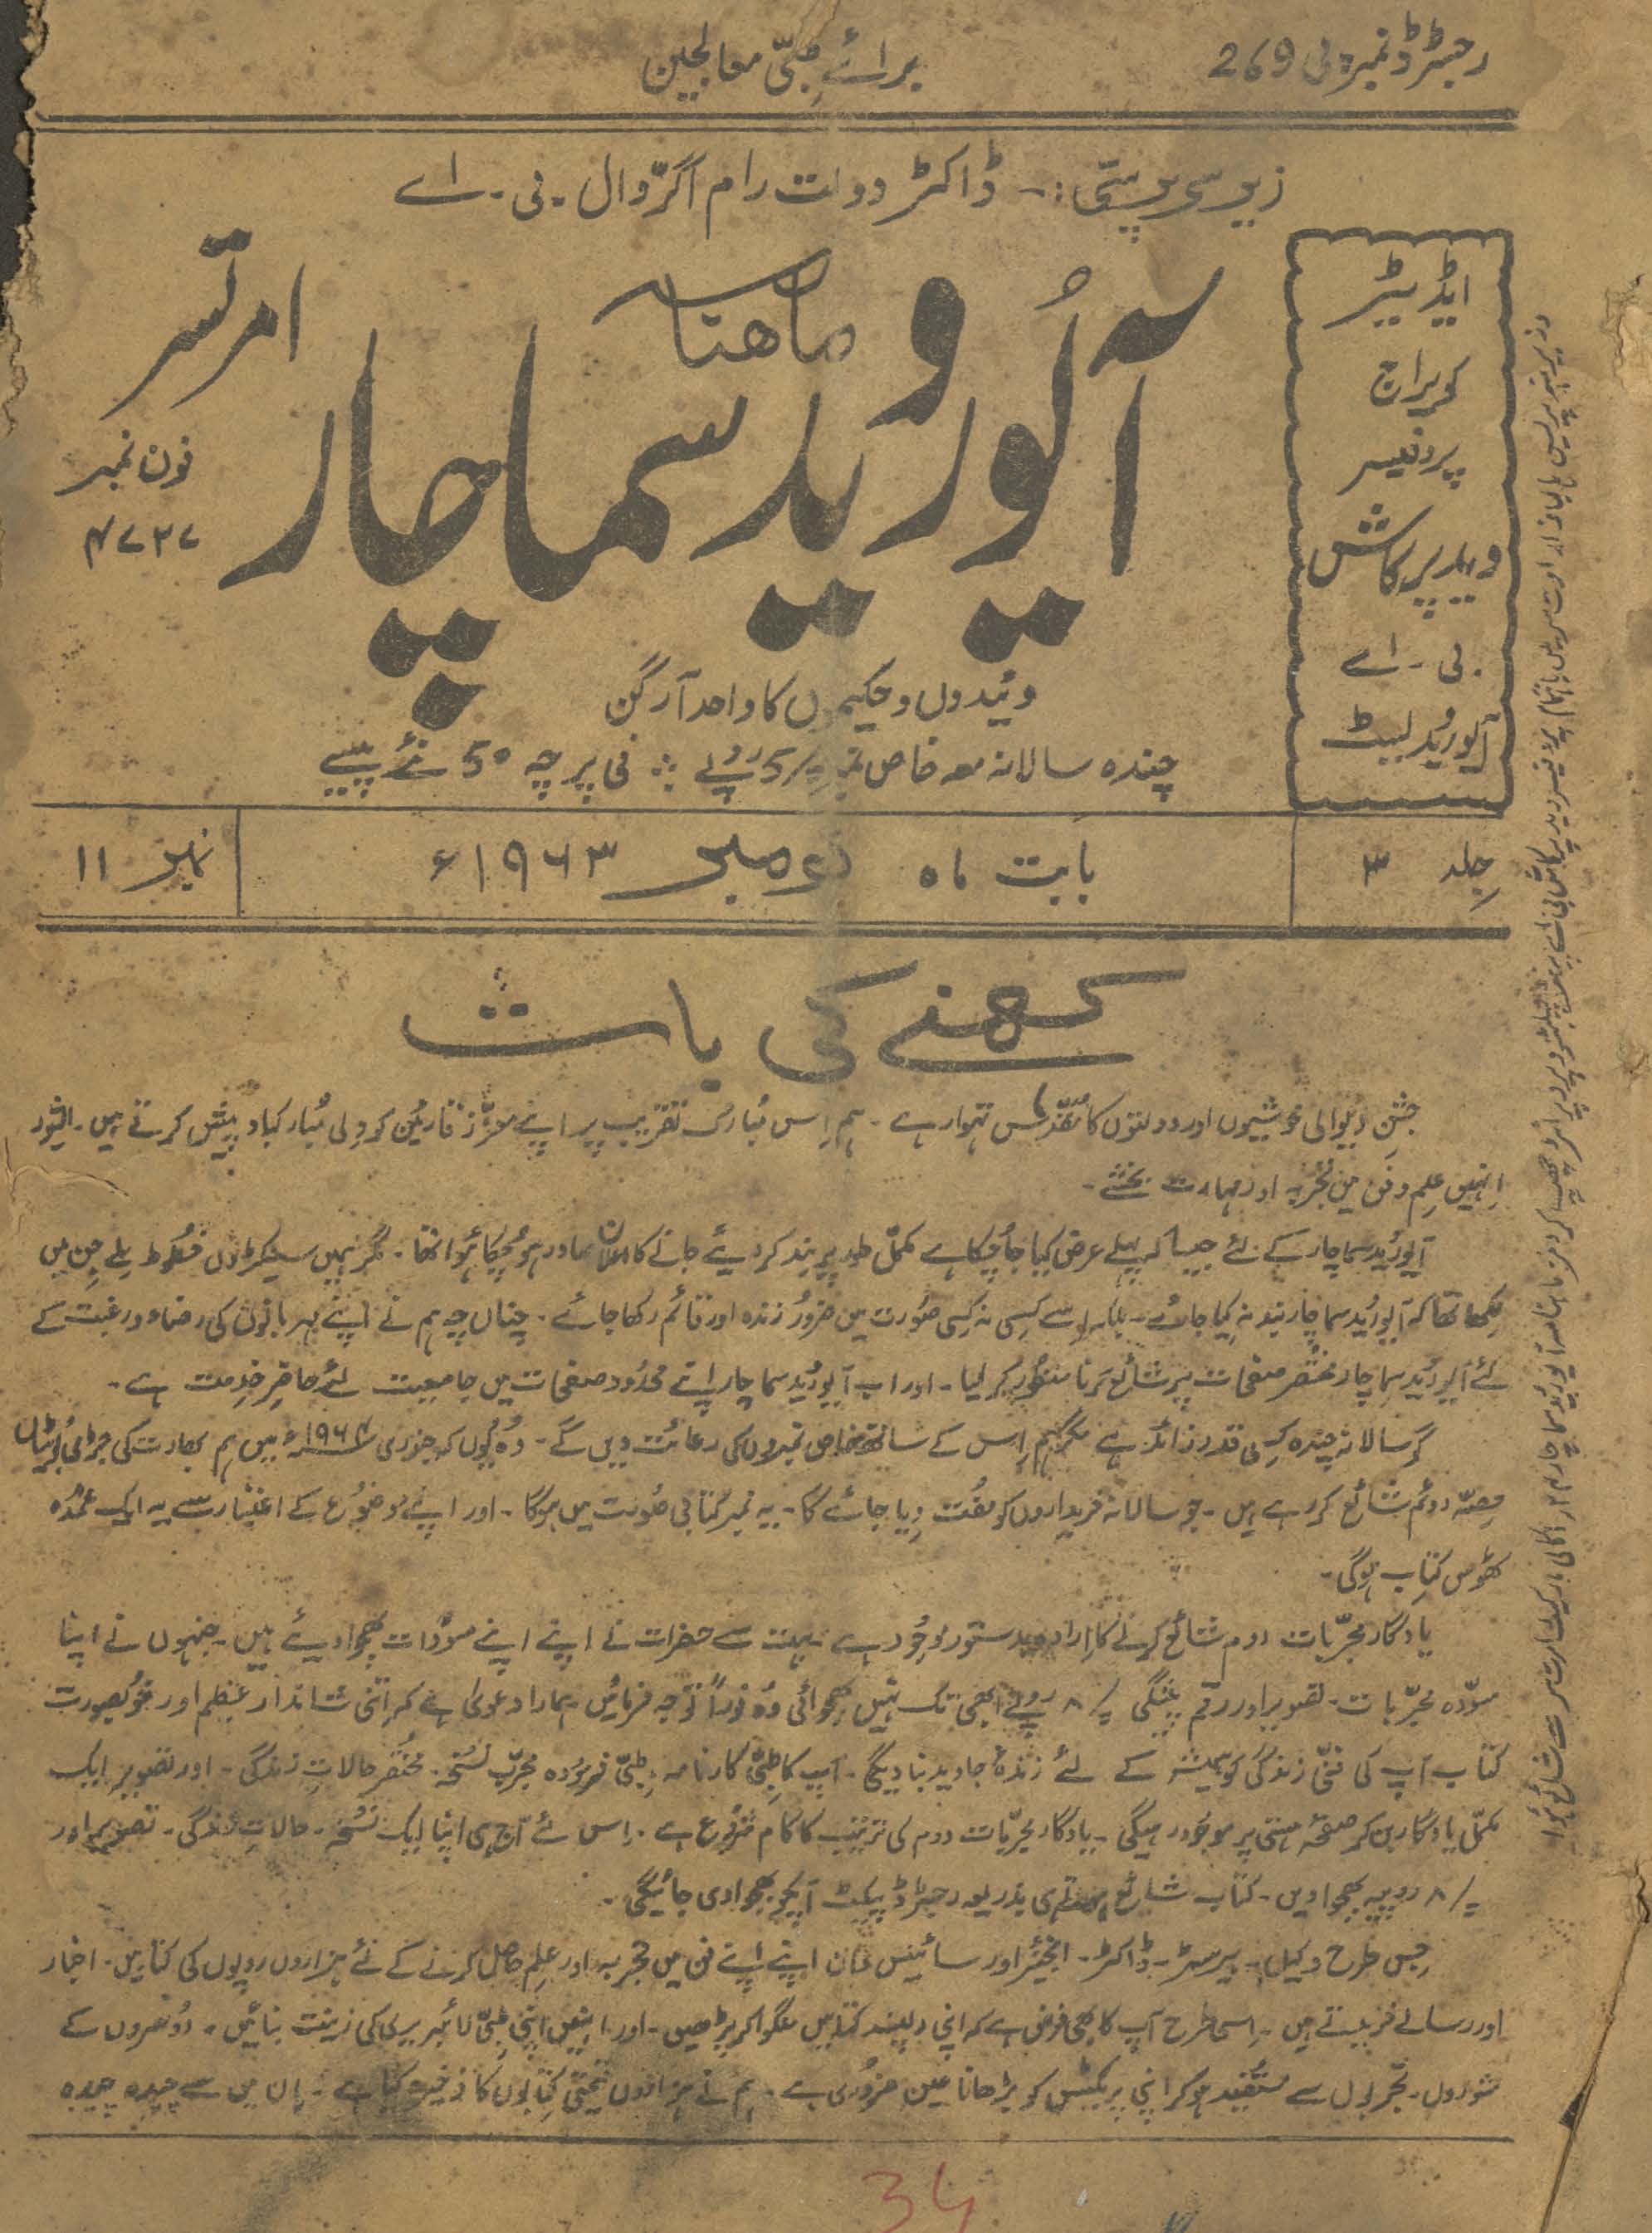 رجسٹرڈ نمبر پی 269
برائے طِبّی معالجین
زیرِ سرپرستی :- ڈاکٹر دولت رام اگرّوال - بی - اے
ایڈیٹر
کویراج
پروفیسر
وید پرکاش
بی - اے
آیورویدلیٹ
ماھنامہ
آیورویدسماچار
امرتسر
فون نمبر
۴۷۲۷
وئیدوں و حکیموں کا واحد آرگن
چندہ سالانہ معہ خاص نمبر -/5 روپے ∴ فی پرچہ 50 نئے پیسے
جِلد ۳
بابت ماہ نومبر ۱۹۶۳ء
نمبر ۱۱
کہنے کی بات
جشنِ دیوالی خوشیوں اور دولتوں کا مُقدّس تہوار ہے - ہم اِس مُبارک تقریب پر اپنے معزّز قارئین کو دِلی مُبارکباد پیش کرتے ہیں - ایشور
اِنہیں عِلم و فن میں تجربہ اور مہارت بخشے -
آیورُوید سماچار کے لئے جیسا کہ پہلے عرض کیا جا چُکا ہے مکمّل طور پر بند کر دیئے جانے کا اعلان صادر ہو چُکا ہُوا تھا - مگر ہمیں سینکڑوں خطُوط مِلے جِن میں
لِکھا تھا کہ آیورُوید سماچار بند نہ کیا جائے - بلکہ اِسے کِسی نہ کِسی صُورت میں ضرور زندہ اور قائم رکھا جائے - چناں چہ ہم نے اپنے مہربانوں کی رضا و رغبت کے
لئے آیورُوید سماچار مختصر صفحات پر شائع کرنا منظُور کر لیا - اور اب آیورُوید سماچار اپنے محدُود صفحات میں جامعیت لئے حاضِرِ خِدمت ہے -
گو سالانہ چندہ کِسی قدر زائد ہے مگر ہم اِس کے ساتھ خاص نمبروں کی رعائت دیں گے - وُہ یُوں کہ جنوری ۱۹۶۴ء میں ہم بھارت کی جڑی بُوٹیاں
حِصّہ دوئم شائع کر رہے ہیں - جو سالانہ خریداروں کو مفُت دِیا جائے گا - یہ نمبر کتابی صُورت میں ہوگا - اور اپنے موضُوع کے اعتبار سے یہ ایک عُمدہ
ٹھوس کتاب ہوگی -
یادگار مجرّبات دوم شائع کرنے کا اِرادہ بدستور موجُود ہے - بہت سے حضرات نے اپنے اپنے مسوّدات بھجوا دیئے ہیں - جنہوں نے اپنا
مسوّدہ مُجرّبات - تصویر اور رقم پیشگی -/۸ روپے ابھی تک نہیں بھجوائی وُہ فوراً توجہ فرمائیں - ہمارا دعویٰ ہے کہ اتنی شاندار عظیم اور خُوبصورت
کتاب آپ کی فنّی زندگی کو ہمیشہ کے لئے زندۂ جاوید بنا دیگی - آپ کا طِبّی کارنامہ - طِبّی فرمُودہ مجرّب نُسخہ - مُختصر حالاتِ زندگی - اور تصویر ایک
مکمّل یادگار بن کر صفحۂ ہستی پر موجُود رہیگی - یادگار مجرّبات دوم کی ترتیب کا کام شُرُوع ہے - اِس لئے آج ہی اپنا ایک نُسخہ - حالاتِ زندگی - تصویر اور
-/۸ روپیہ بھجوا دیں - کتاب شائع ہوتے ہی بذریعہ رجسٹرڈ پیکٹ آپکو بھجوا دی جائیگی -
جِس طرح وکیل - بیرسٹر - ڈاکٹر - انجنیئر اور سائینس دان اپنے اپنے فن میں تجربہ اور عِلم حاصل کرنے کے لئے ہزاروں روپوں کی کتابیں - اخبار
اور رسالے خریدتے ہیں - اِسی طرح آپ کا بھی فرض ہے کہ اپنی دِلپسند کتابیں منگوا کر پڑھیں - اور انہیں اپنی طِبّی لائبریری کی زینت بنائیں - دُوسروں کے
مشوروں - تجربوں سے مُستفید ہو کر اپنی پریکٹِس کو بڑھانا عین ضرُوری ہے - ہم نے ہزاروں قیمتی کتابوں کا ذخیرہ کیا ہے - اِن میں سے چیدہ چیدہ
34